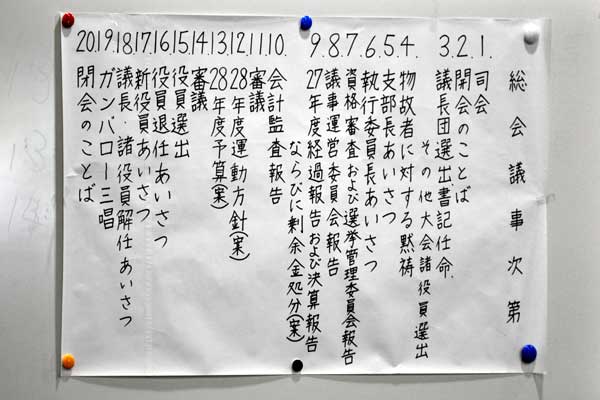 総会議事次第
1. 司会
2. 開会のことば
3. 議長団選出・書記任命.
その他大会諸役員選出
4. 物故者に対する黙祷
5. 支部長あいさつ
6. 執行委員長あいさつ
7. 資格審査および選挙管理委員会報告
8. 議事運営委員会報告
9. 27年度経過報告および決算報告
ならびに剰余金処分(案)
10. 会計監査報告
11. 審議
12. 28年度運動方針(案)
13. 28年度予算(案)
14. 審議
15. 役員選出
16. 役員退任あいさつ
17. 新役員あいさつ
18. 議長・諸役員解任あいさつ
19. ガンバロー三唱
20. 閉会のことば